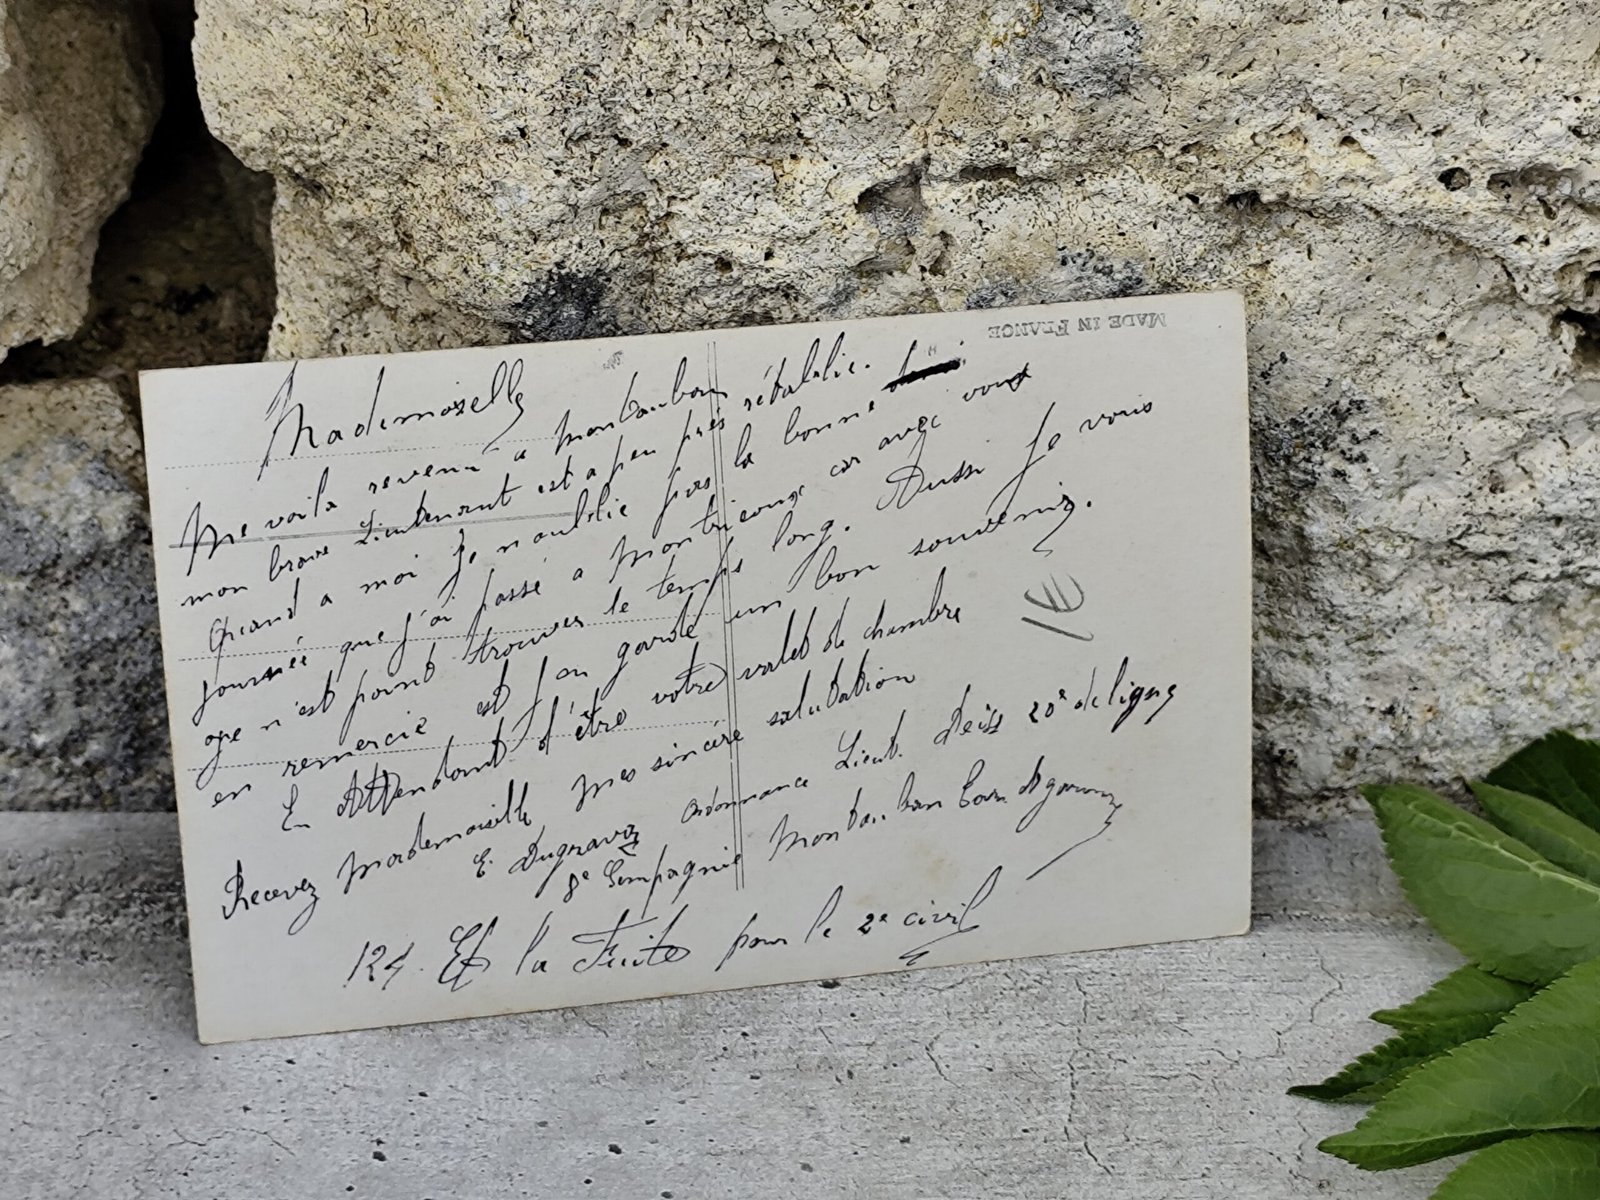 MADE IN FRANCE
Mademoiselle
Me voila revenu a montauban
mon brave Lieutenant est a peu près rétablie.
Quand a moi Je n oublie pas la bonne
journéé que j'ai passé a montricoux car avec vous
ope n'est point trouver le temps long. Aussi Je vous
en remercie et J'en garde un bon souvenir.
En Attendant d'être votre valet de chambre
Recevez mademoiselle mes sincére salutation
E. Dugravez ordonnance Lieut. Weiss 20e de ligne
8e Compagnie Montauban Tarn et garonne
124. Et la Fuite pour le 2e civil
1€